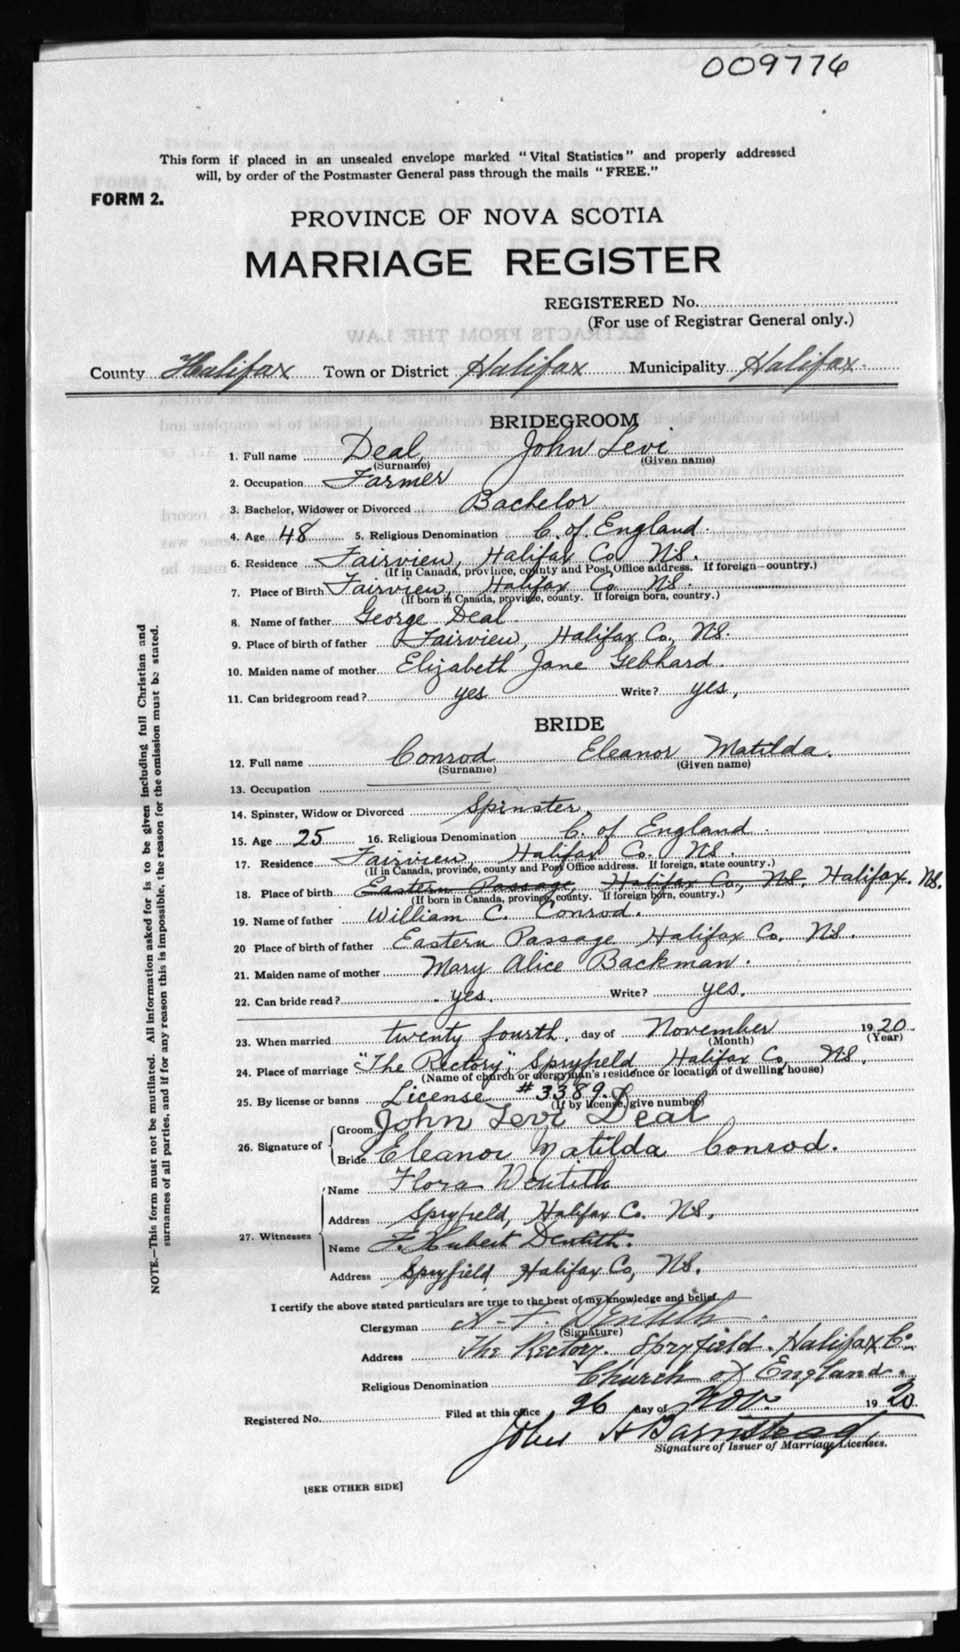 009776
This form if placed in an unsealed envelope marked "Vital Statistics" and properly addressed
will, by order of the Postmaster General pass through the mails "FREE."
FORM 2.
PROVINCE OF NOVA SCOTIA
MARRIAGE REGISTER
REGISTERED No.
(For use of Registrar General only.)
County Halifax Town or District Halifax Municipality Halifax
BRIDEGROOM
1. Full name Deal, John Levi
(Surname) (Given name)
2. Occupation Farmer
3. Bachelor, Widower or Divorced Bachelor
4. Age 48 5. Religious Denomination C. of England.
6. Residence Fairview, Halifax Co NS.
(If in Canada, province, county and Post Office address. If foreign—country.)
7. Place of Birth Fairview, Halifax Co NS.
(If born in Canada, province, county. If foreign born, country.)
8. Name of father George Deal.
9. Place of birth of father Fairview, Halifax Co., NS.
10. Maiden name of mother Elizabeth Jane Gebhard.
11. Can bridegroom read? yes Write? yes,
BRIDE
12. Full name Conrod Eleanor Matilda.
(Surname) (Given name)
13. Occupation
14. Spinster, Widow or Divorced Spinster,
15. Age 25 16. Religious Denomination C. of England.
17. Residence Fairview, Halifax Co. NS.
(If in Canada, province, county and Post Office address. If foreign, state country.)
18. Place of birth Eastern Passage, Halifax Co., NS. Halifax. NS.
(If born in Canada, province, county. If foreign born, country.)
19. Name of father William C. Conrod.
20 Place of birth of father Eastern Passage Halifax Co. NS.
21. Maiden name of mother Mary Alice Backman.
22. Can bride read? yes. Write? yes.
23. When married twenty fourth. day of November 1920
(Month) (Year)
24. Place of marriage "The Rectory", Spryfield Halifax Co, NS.
(Name of church or clergyman's residence or location of dwelling house)
25. By license or banns License #3389.
(If by license, give number)
26. Signature of
Groom John Levi Deal
Bride Eleanor Matilda Conrod.
27. Witnesses
Name Flora Dentith
Address Spryfield, Halifax Co. NS.
Name F. Hubert Dentith.
Address Spryfield Halifax Co, NS.
I certify the above stated particulars are true to the best of my knowledge and belief.
Clergyman A. F. Dentith
(Signature)
Address The Rectory. Spryfield. Halifax Co.
Religious Denomination Church of England.
Registered No. Filed at this office 26 day of Nov. 1920.
John H Barnstead
Signature of Issuer of Marriage Licenses.
[SEE OTHER SIDE]
NOTE.—This form must not be mutilated. All information asked for is to be given including full Christian and
surnames of all parties, and if for any reason this is impossible, the reason for the omission must be stated.